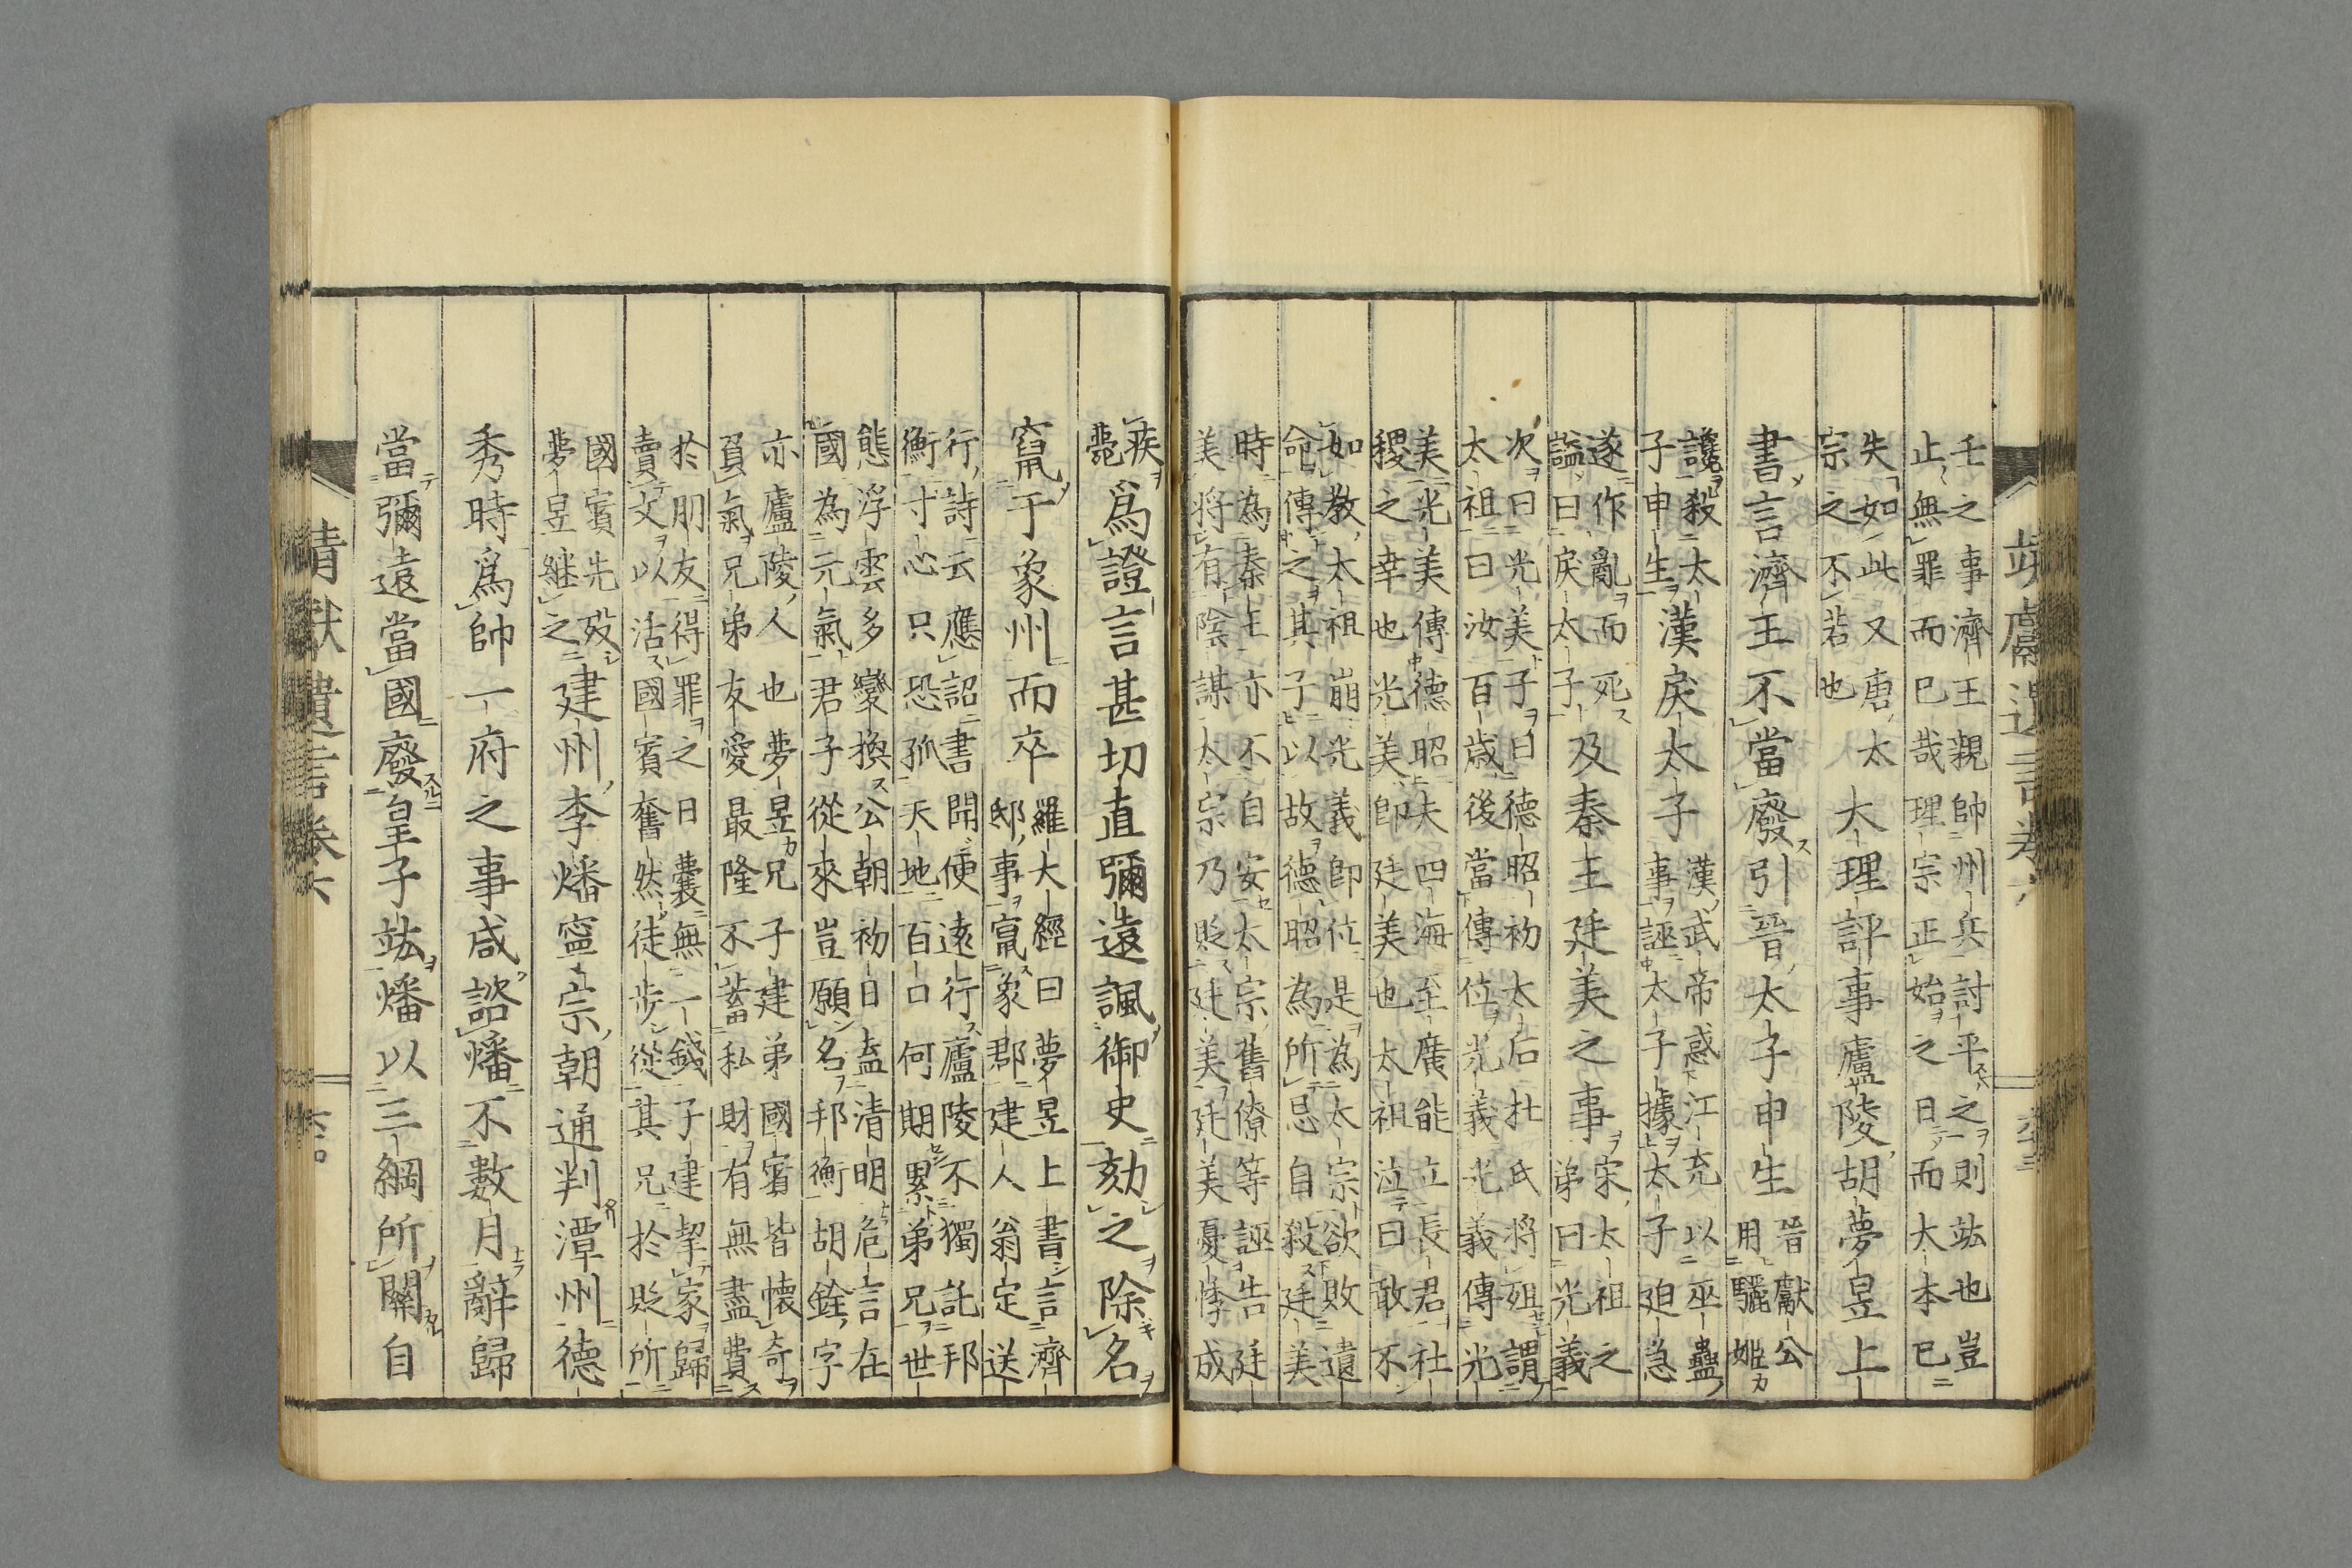 壬之事濟王親帥州兵討平之則竑也豈
止無罪而巳哉理宗正始之日而大本已
失如此又唐太
宗之不若也
大理評事廬陵胡夢昱上
書言濟王不當廢引晉太子申生
晉獻公
用驪姬
讒殺太
子申生
漢戾太子
漢武帝惑江充以巫蠱
事誣太子據太子迫急
遂作亂而死
謚曰戾太子
及秦王廷美之事
宋太祖之
弟曰光義
次曰光美子曰德昭初太后杜氏將殂謂
太祖曰汝百歲後當傳位光義光義傳光
美光美傳德昭夫四海至廣能立長君社
稷之幸也光美卽廷美也太祖泣曰敢不
如教太祖崩光義卽位是為太宗欲敗遺
命傳之其子以故德昭為所忌自殺廷美
時為秦王亦不自安太宗舊僚等誣告廷
美將有陰謀太宗乃貶廷美廷美憂悸成
疾
薨
爲證言甚切直彌遠諷御史劾之除名
竄于象州而卒
羅大經曰夢昱上書言濟
邸事竄象郡建人翁定送
行詩云應詔書聞便遠行廬陵不獨託邦
衡寸心只恐孤天地百口何期累弟兄世
態浮雲多變換公朝初日盍清明危言在
國為元氣君子從來豈願名邦衡胡銓字
亦廬陵人也夢昱兄子建弟國賓皆懷奇
負氣兄弟友愛最隆不蓄私財有無盡費
於朋友得罪之日囊無一錢子建挈家歸
賣文以活國賓奮然徒步從其兄於貶所
國賓先歿
夢昱继之
建州李燔寧宗朝通判潭州德
秀時爲帥一府之事咸諮燔不數月辭歸
當彌遠當國廢皇子竑燔以三綱所關自
靖獻遺言卷六